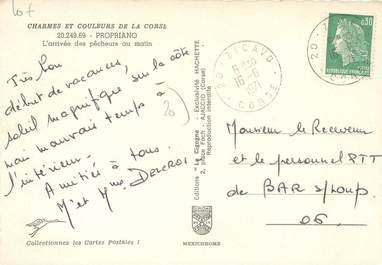 10f
CHARMES ET COULEURS DE LA CORSE
20.249.69 - PROPRIANO
L'arrivée des pêcheurs au matin
Très bon
début de vacances,
soleil magnifique sur la côte
mais mauvais temps à
l'intérieur.
Amitiés à tous.
M et Mme
Collectionnez les Cartes Postales !
Editions "La Cigogne" - Exclusivité HACHETTE
2, place Foch - AJACCIO (Corse)
Reproduction interdite
MEXICHROME
20 - ZICAVO
16-6
1971
CORSE
0,30
REPUBLIQUE FRANCAISE
Monsieur le Receveur
et le personnel PTT
de BAR s/Loup
06.